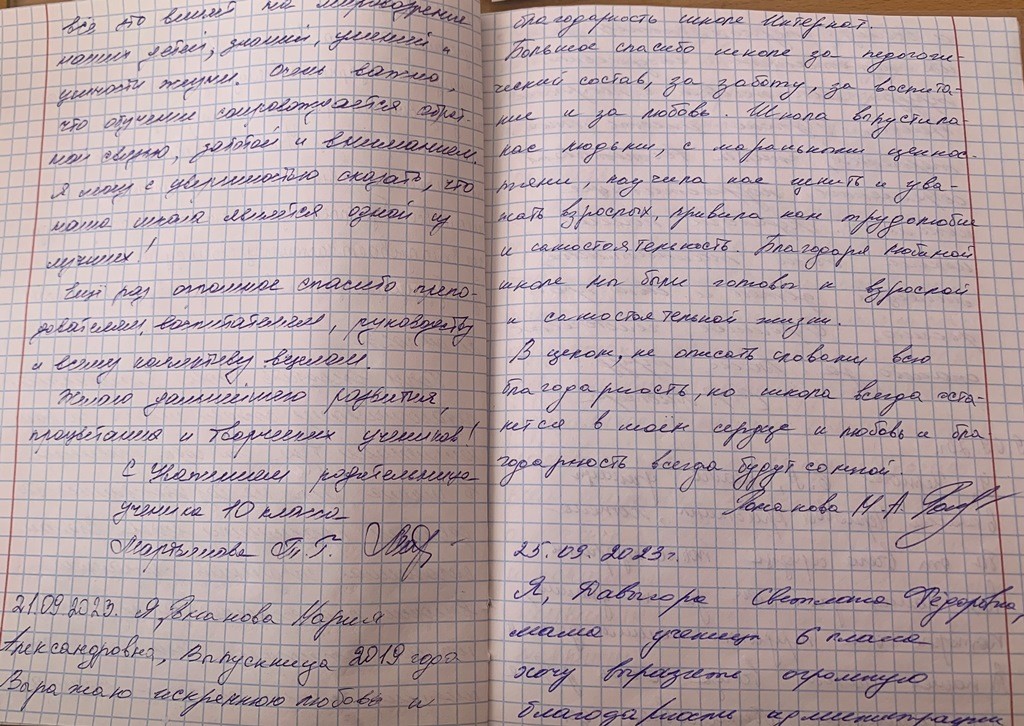 всё это влияет на мировоззрение
наших детей, знаний, умений и
ценности жизни. Очень важно,
что обучение сопровождается обрат-
ной связью, заботой и вниманием.
Я могу с уверенностью сказать, что
наша школа является одной из
лучших!
Ещё раз огромное спасибо препо-
давателям, воспитателям, руководству
и всему коллективу в целом.
Желаю дальнейшего развития,
процветания и творческих учеников!
С Уважением родительница
ученика 10 класса
Мартынова Т.Г.
21.09.2023. Я, Романова Мария
Александровна, Выпускница 2019 года
Выражаю искреннюю любовь и
благодарность школе Интернат.
Большое спасибо школе за педогоги-
ческий состав, за заботу, за воспита-
ние и за любовь. Школа выпустила
нас людьми, с моральными ценнос-
тями, научила нас ценить и ува-
жать взрослых, привила нам трудолюбие
и самостоятельность. Благодаря любимой
школе мы были готовы к взрослой
и самостоятельной жизни.
В целом, не описать словами всю
благодарность, но школа всегда оста-
нется в моём сердце и любовь и бла
годарность всегда будут со мной.
Романова М.А.
25.09.2023г.
Я, Давыгора Светлана Фёдоровна,
мама ученицы 6 класса
хочу выразить огромную
благодарность администрации